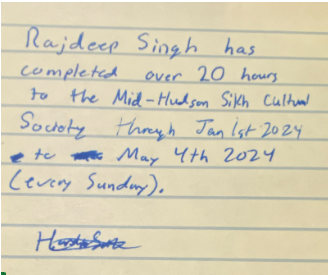 Rajdeep Singh has
completed over 20 hours
to the Mid-Hudson Sikh Cultural
Society through Jan 1st 2024
to May 4th 2024
(every Sunday).